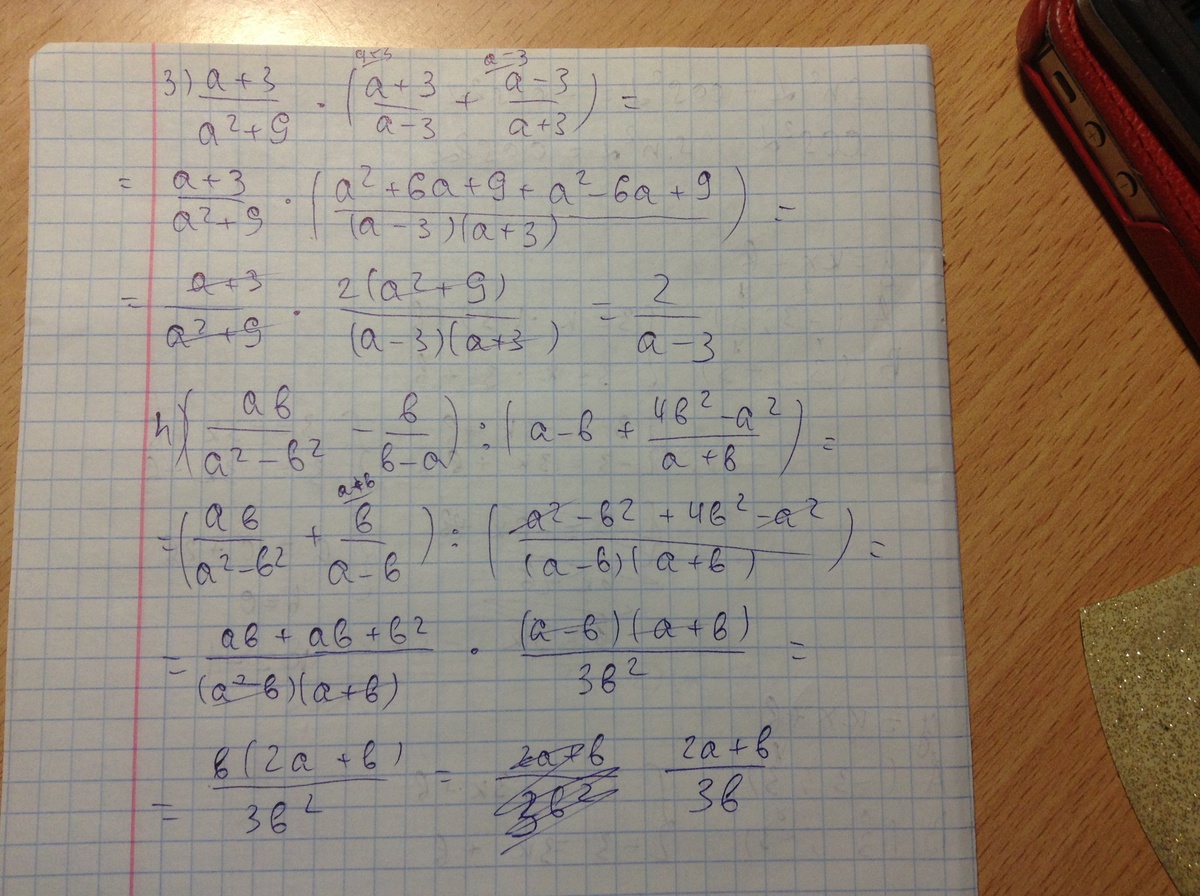 3) (a+3)/(a²+9) · ((a+3)/(a-3) + (a-3)/(a+3)) =
= (a+3)/(a²+9) · ((a²+6a+9+a²-6a+9)/((a-3)(a+3))) =
= (a+3)/(a²+9) · (2(a²+9))/((a-3)(a+3)) = 2/(a-3)
4) (ab/(a²-b²) - b/(b-a)) : (a-b + (4b²-a²)/(a+b)) =
= (ab/(a²-b²) + b/(a-b)) : ((a²-b²+4b²-a²)/((a-b)(a+b))) =
= (ab+ab+b²)/((a-b)(a+b)) · ((a-b)(a+b))/(3b²) =
= (b(2a+b))/(3b²) = (2a+b)/(3b²) (2a+b)/(3b)